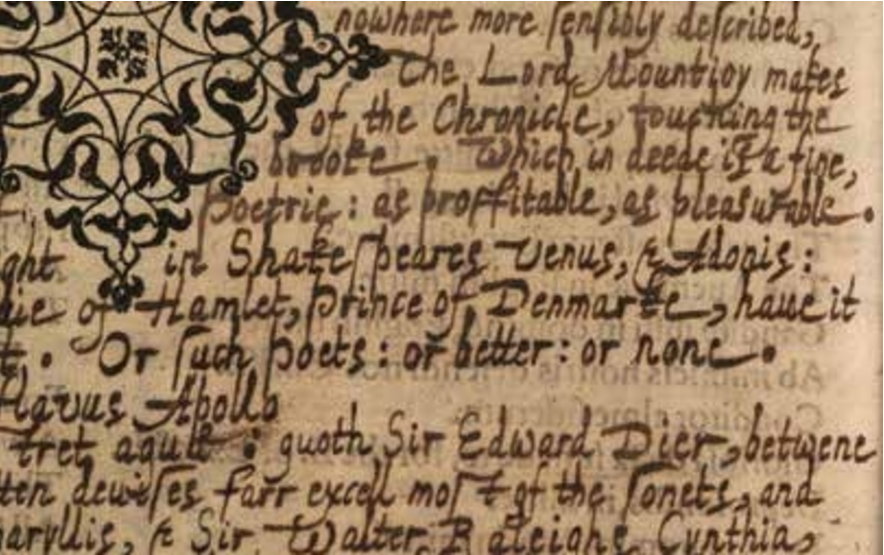 nowhere more ſenſibly deſcribed,
The Lord Mountioy makes
of the Chronicle, touching the
brooke. Which in deede is a fine,
Poetrie: as proffitable, as pleasurable.
ght in Shakeſpeares Venus, & Adonis:
die of Hamlet, Prince of Denmarke, haue it
t. Or ſuch poets: or better: or none.
flavus Apollo
tret aqua: quoth Sir Edward Dier, betwene
tten deuiſes farr excell moſt of the ſonets, and
maryllis, & Sir Walter Raleighs Cynthia,